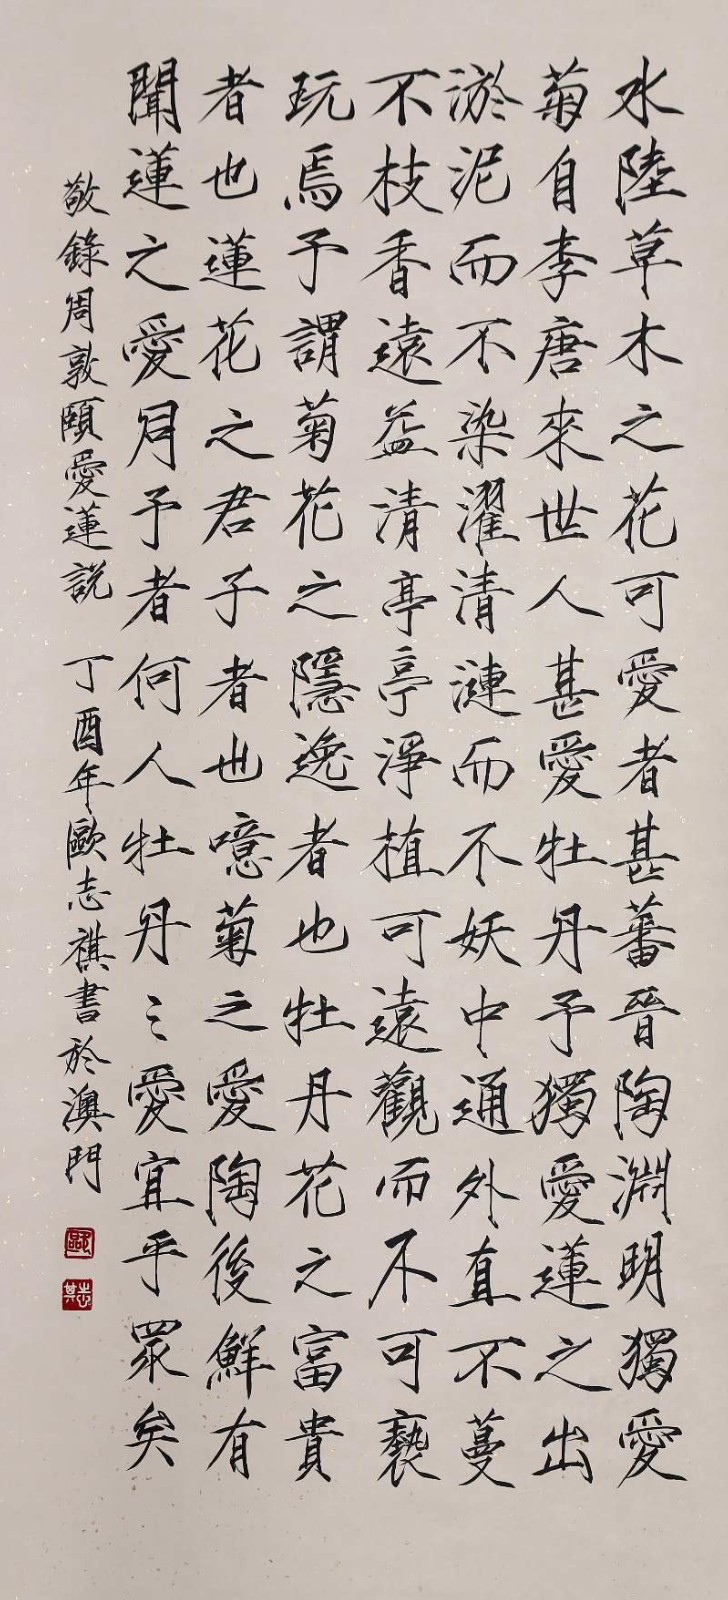 水陸草木之花可愛者甚蕃晉陶淵明獨愛
菊自李唐來世人甚愛牡丹予獨愛蓮之出
淤泥而不染濯清漣而不妖中通外直不蔓
不枝香遠益清亭亭淨植可遠觀而不可褻
玩焉予謂菊花之隱逸者也牡丹花之富貴
者也蓮花之君子者也噫菊之愛陶後鮮有
聞蓮之愛同予者何人牡丹之愛宜乎眾矣
敬錄周敦頤愛蓮說 丁酉年歐志祺書於澳門
志其